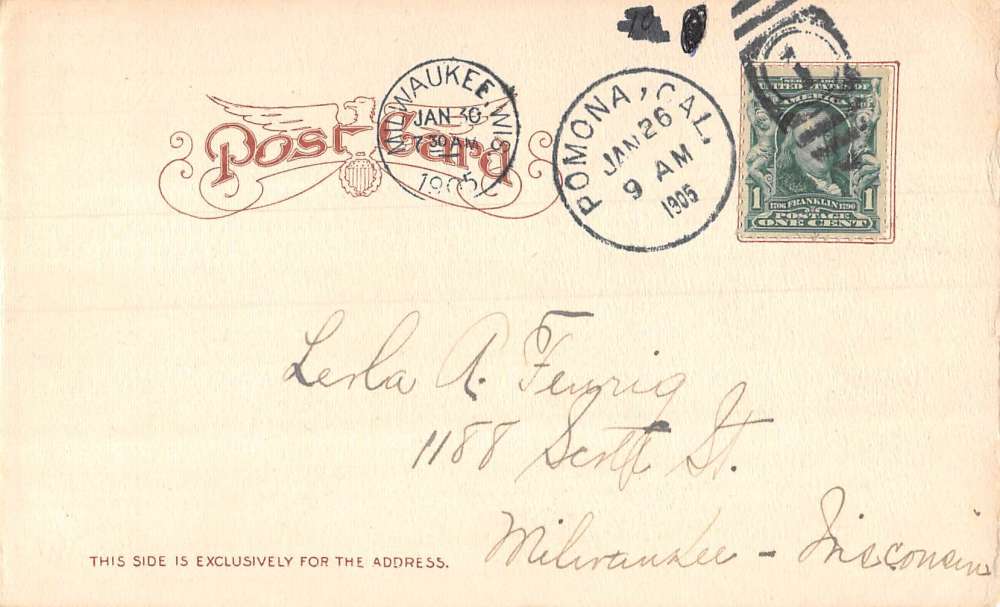 Post Card
MILWAUKEE, WIS.
JAN 30
7-30 AM
1905
POMONA, CAL.
JAN 26
9 AM
1905
UNITED STATES OF
AMERICA
1 1706 FRANKLIN 1790 1
POSTAGE
ONE CENT
A.
1188 Scott St.
Milwaukee - Wisconsin
THIS SIDE IS EXCLUSIVELY FOR THE ADDRESS.